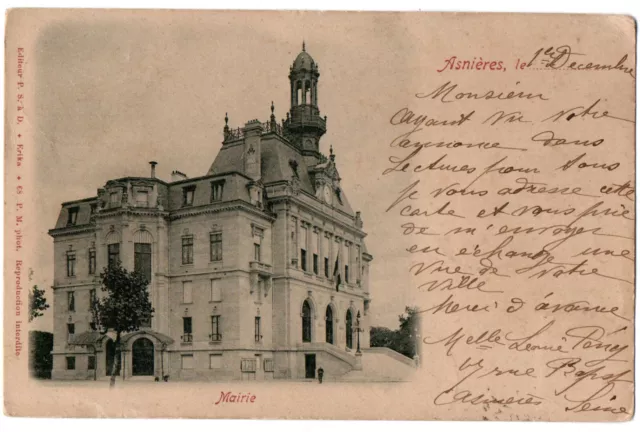 Editeur P. S. à D. ✦ Erika ✦ 68 P. M. phot. Reproduction interdite
Asnières, le 1er Decembre
Monsieur
ayant vu votre
annonce dans
Lectures pour tous
je vous adresse cette
carte et vous prie
de m'envoyer
en echange une
vue de votre
ville
Merci d'avance
Melle
rue
Asnieres Seine
Mairie